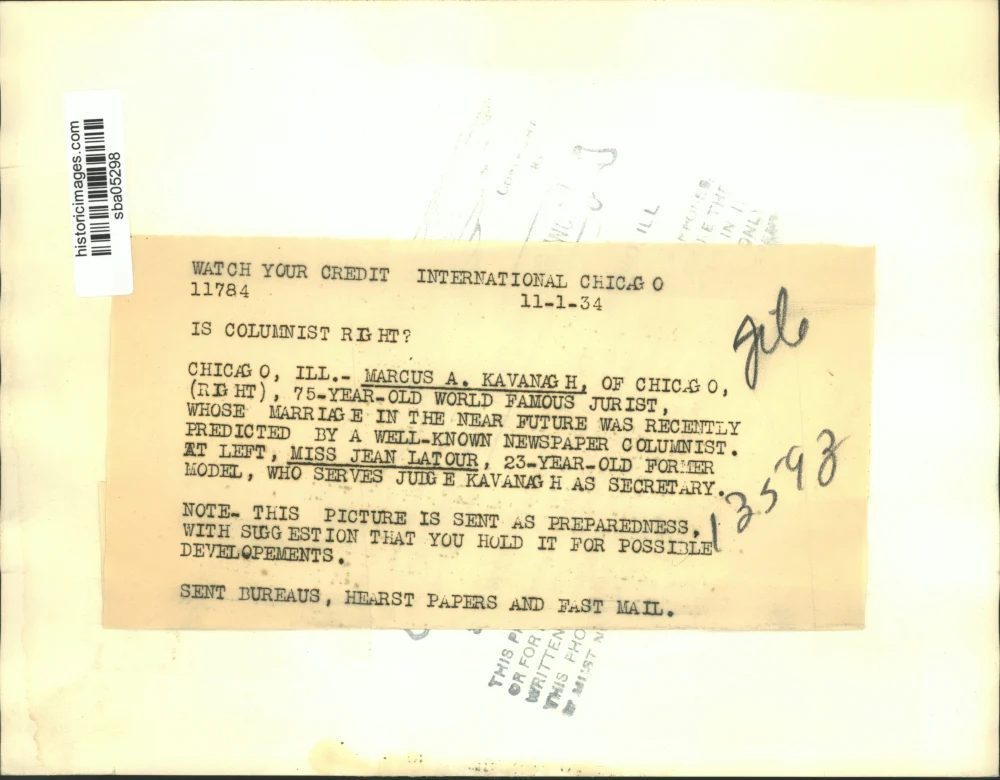 historicimages.com
sba05298
ILL
IN
ONLY
WATCH YOUR CREDIT INTERNATIONAL CHICAGO
11784 11-1-34
IS COLUMNIST RIGHT?
CHICAGO, ILL.- MARCUS A. KAVANAGH, OF CHICAGO,
(RIGHT), 75-YEAR-OLD WORLD FAMOUS JURIST,
WHOSE MARRIAGE IN THE NEAR FUTURE WAS RECENTLY
PREDICTED BY A WELL-KNOWN NEWSPAPER COLUMNIST.
AT LEFT, MISS JEAN LATOUR, 23-YEAR-OLD FORMER
MODEL, WHO SERVES JUDGE KAVANAGH AS SECRETARY.
NOTE- THIS PICTURE IS SENT AS PREPAREDNESS,
WITH SUGGESTION THAT YOU HOLD IT FOR POSSIBLE
DEVELOPEMENTS.
SENT BUREAUS, HEARST PAPERS AND FAST MAIL.
13593
THIS
OR FOR
WRITTEN
THIS PHO
MUST N